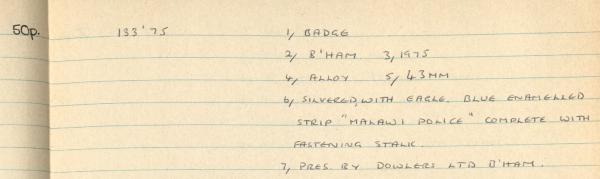 50p. 133'75 1, BADGE
2, B'HAM 3, 1975
4, ALLOY 5, 43MM
6, SILVERED, WITH EAGLE. BLUE ENAMELLED
STRIP "MALAWI POLICE" COMPLETE WITH
FASTENING STALK.
7, PRES. BY DOWLERS LTD B'HAM.